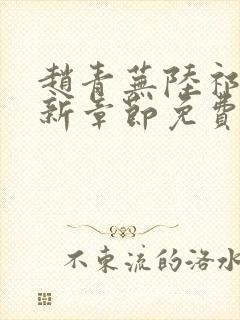 趙青蕪陸祁
新章節免費
不東流的洛水